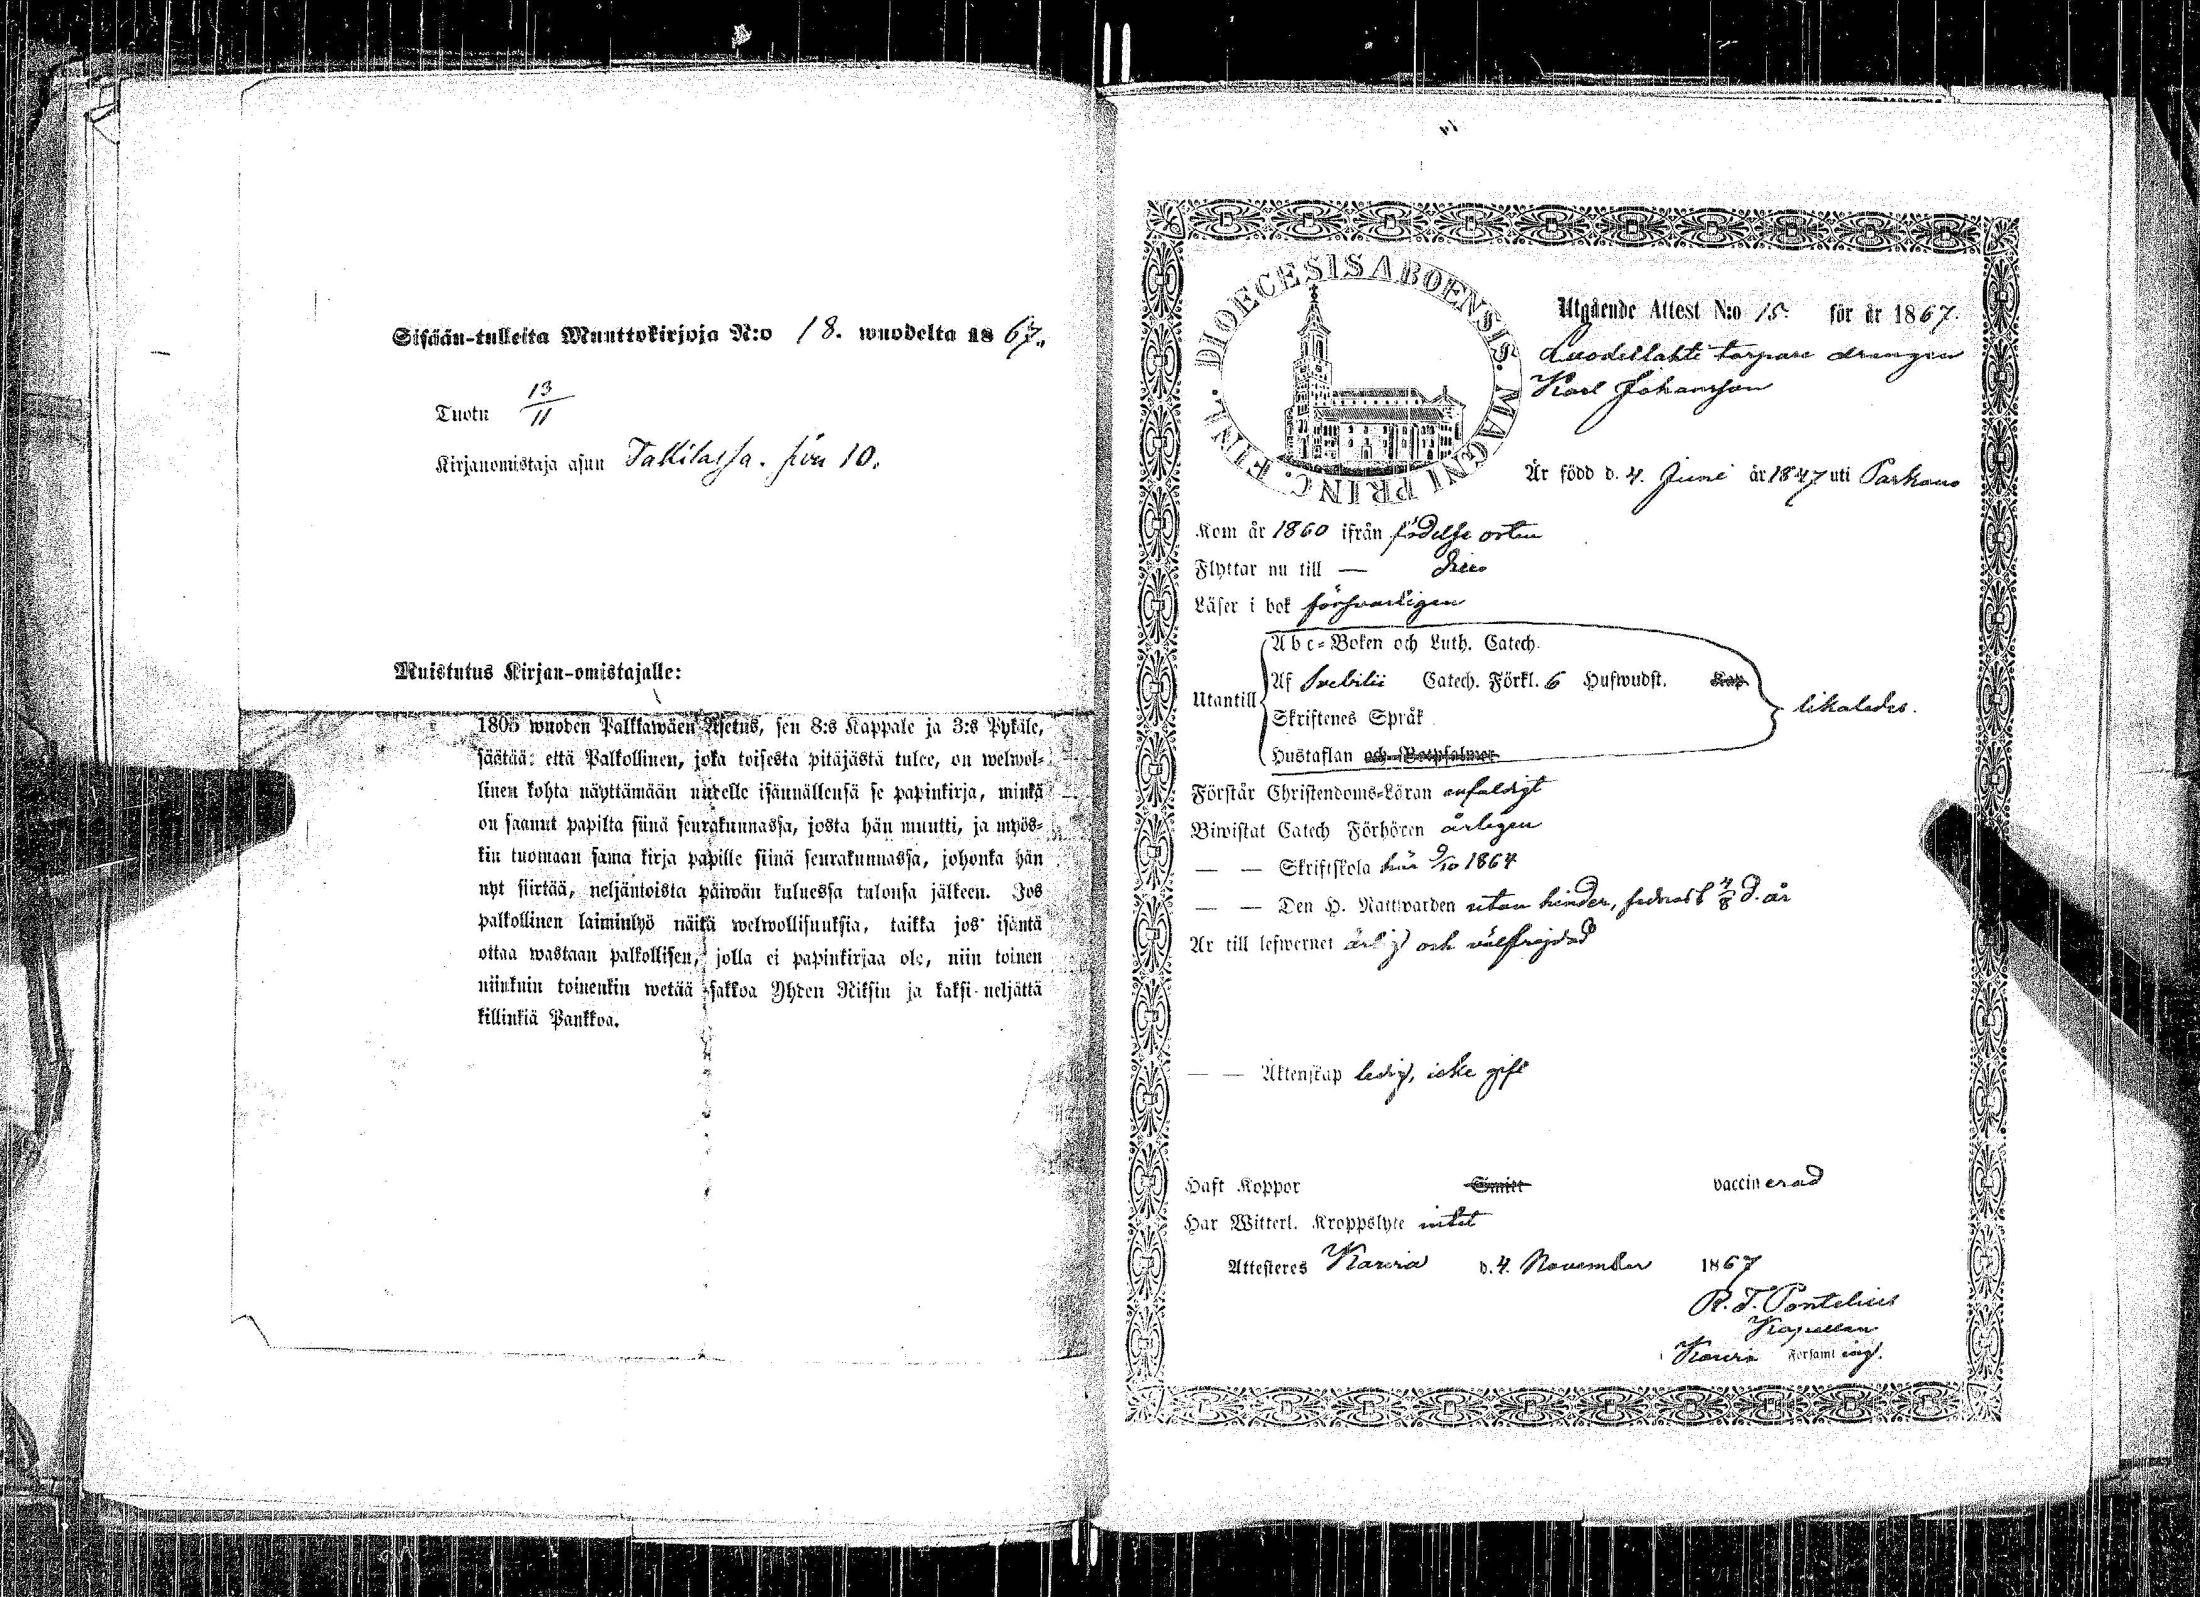 Sisään-tulleita Muuttokirjoja N:o 18. wuodelta 1867.
Tuotu 13/11
Kirjanomistaja asuu Tallilassa. sivu 10.
Muistutus Kirjan-omistajalle:
1805 wuoden Palkkawäen Asetus, sen 8:s Kappale ja 3:s Pykäle,
säätää: että Palkollinen, joka toisesta pitäjästä tulee, on welwol-
linen kohta näyttämään uudelle isännällensä se papinkirja, minkä
on saanut papilta siinä seurakunnassa, josta hän muutti, ja myös-
kin tuomaan sama kirja papille siinä seurakunnassa, johonka hän
nyt siirtää, neljäntoista päiwän kuluessa tulonsa jälkeen. Jos
palkollinen laiminlyö näitä welwollisuuksia, taikka jos isäntä
ottaa wastaan palkollisen, jolla ei papinkirjaa ole, niin toinen
niinkuin toinenkin wetää sakkoa Yhden Riksin ja kaksi neljättä
killinkiä Pankkoa.
DIOECESIS ABOENSIS. MAGNI PRINC. FINL.
Utgående Attest N:o 15. för år 1867.
Luodeslahti torpare drengen
Karl Johansson
Är född d. 4. Juni år 1847 uti Parkano
Kom år 1860 ifrån födelse orten
Flyttar nu till —
Läser i bok försvarligen
Utantill
Abc-Boken och Luth. Catech.
Af Svebilii Catech. Förkl. 6 Hufwudst. Kap.
Skriftenes Språk
Hustaflan och Botpsalmer
likaledes.
Förstår Christendoms-Läran enfaldigt
Biwistat Catech Förhören årligen
— — Skriftskola här 9/10 1864
— — Den H. Nattwarden utan hinder, sednast 4/8 d. år
Är till lefwernet ärlig och välfrejdad
— — Äktenskap ledig, icke gift
Haft Koppor Smitt vaccinerad
Har Witterl. Kroppslyte intet
Attesteres Karvia d. 4. November 1867
R. T. Pontelius
Kapellan
i Karvia Församl ing.